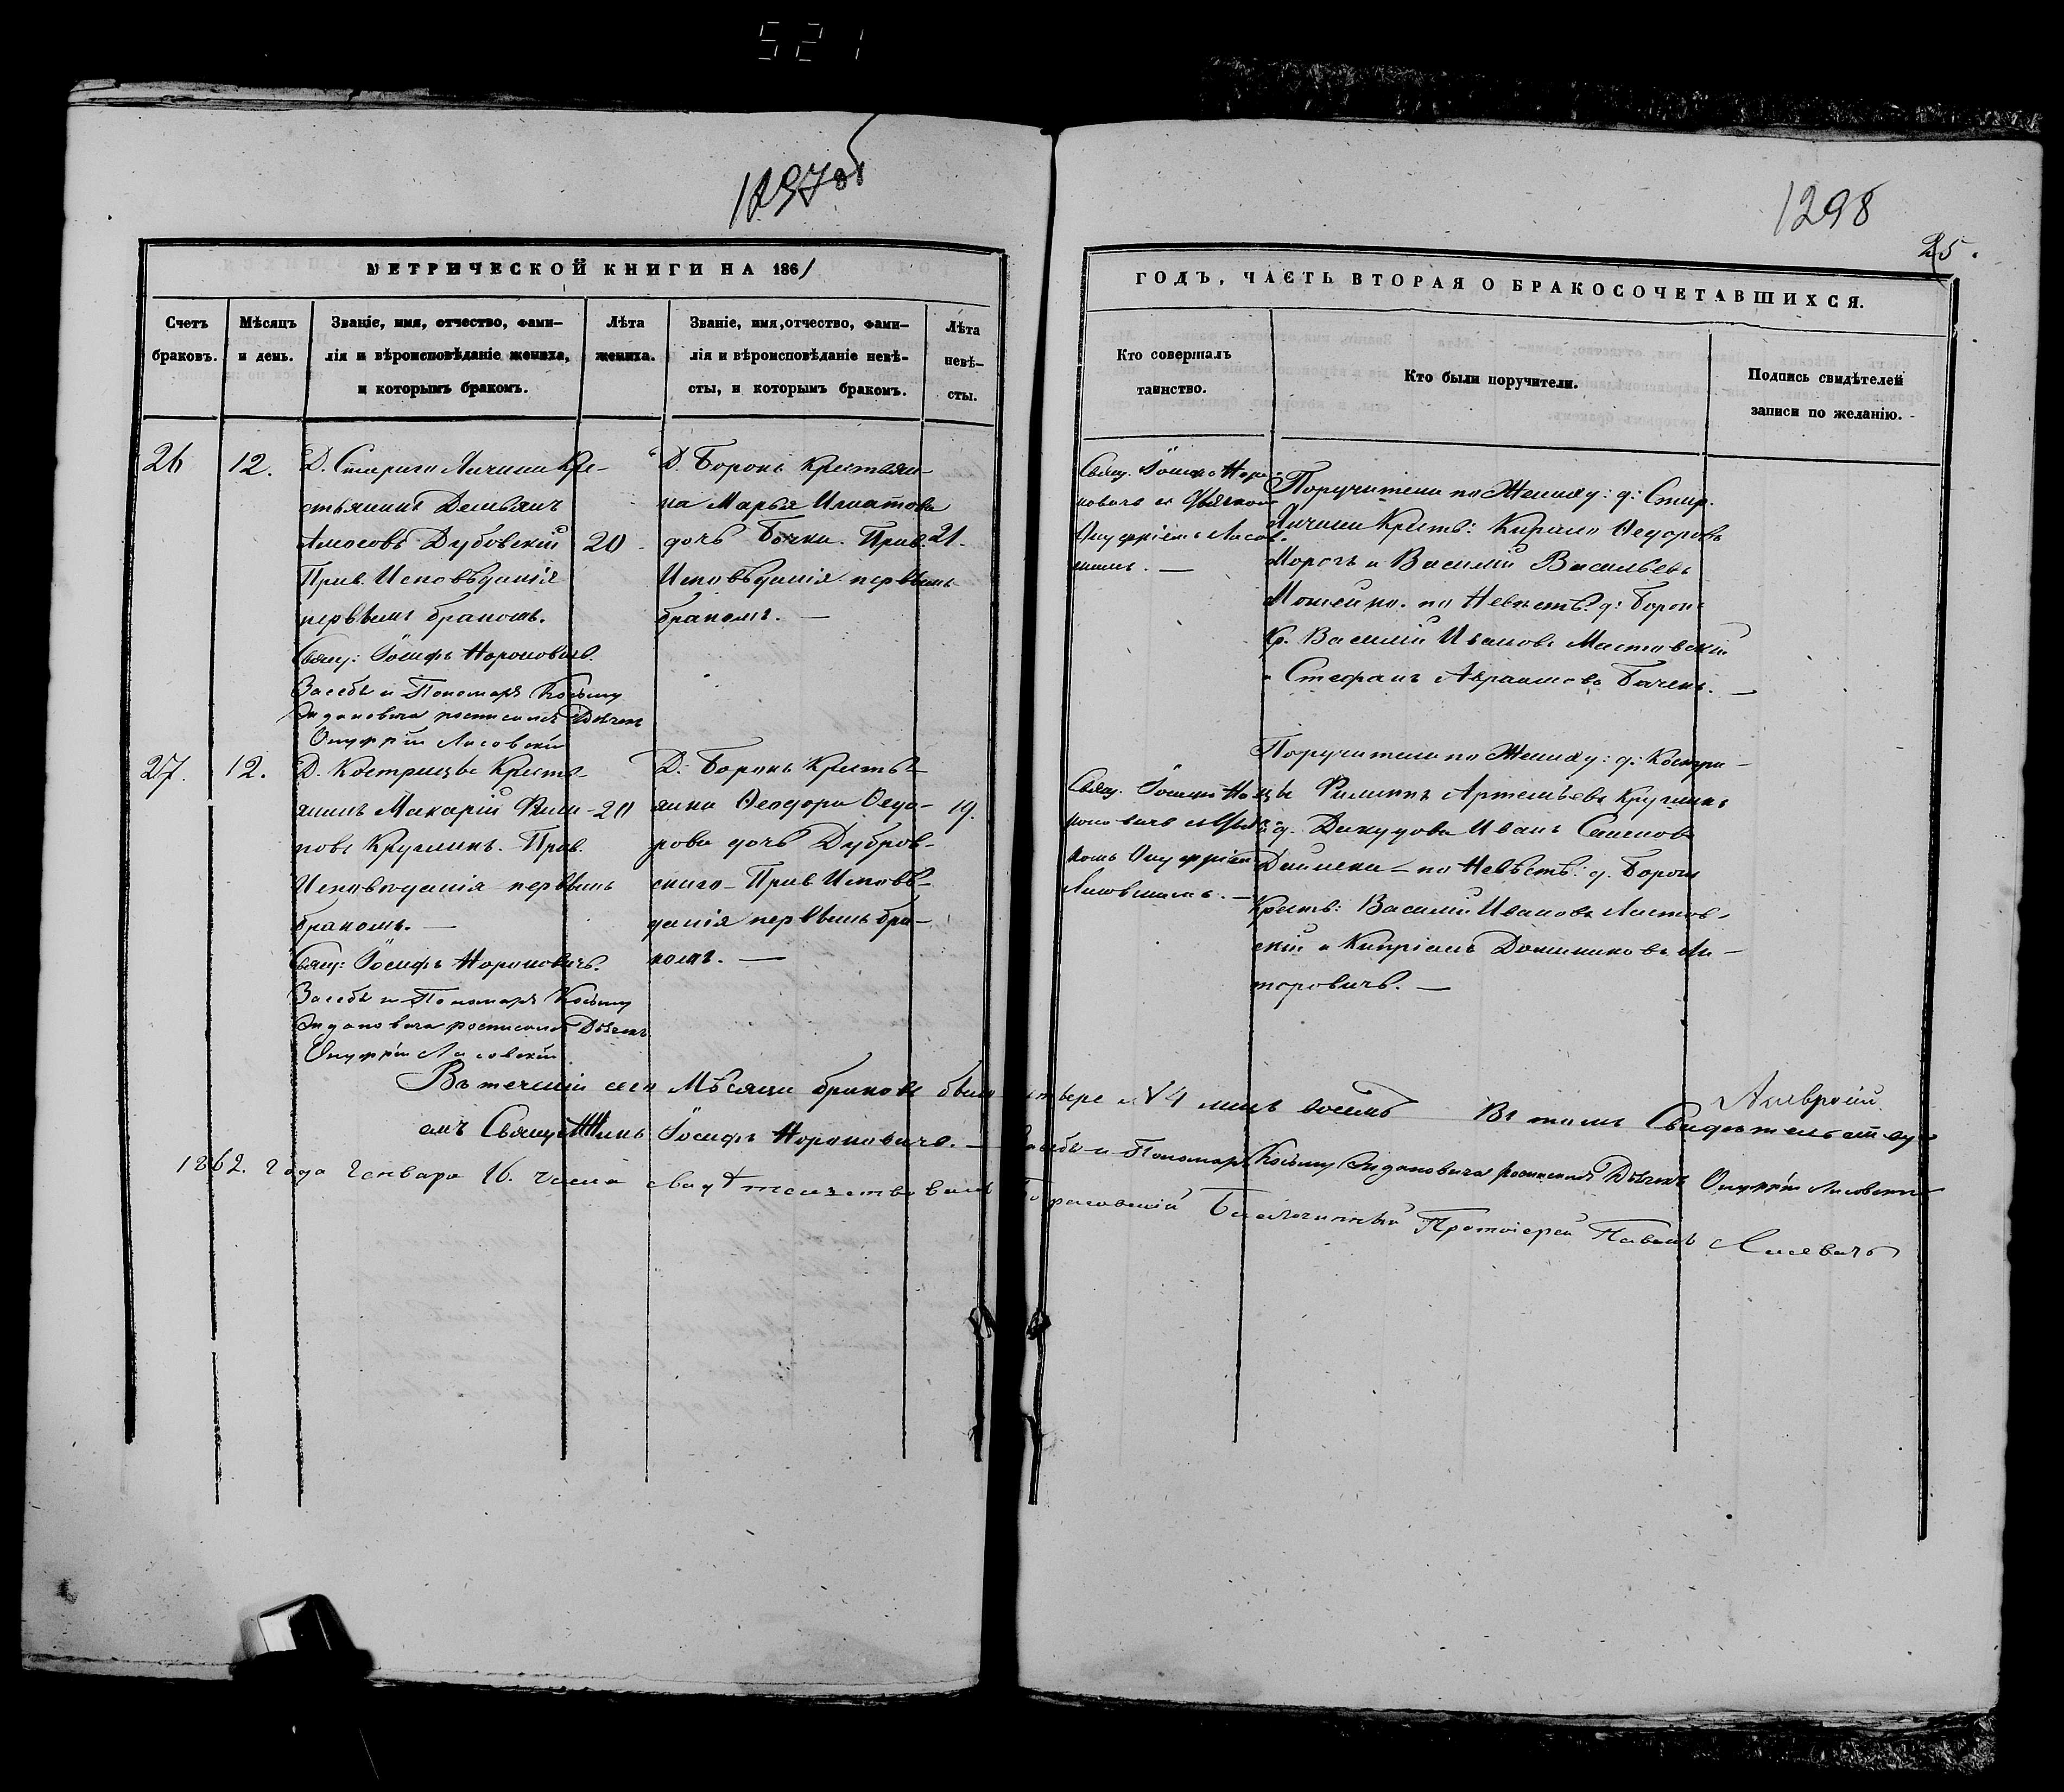 521
1297об
1298
25.
МЕТРИЧЕСКОЙ КНИГИ НА 1861
ГОДЪ, ЧАСТЬ ВТОРАЯ О БРАКОСОЧЕТАВШИХСЯ.
Счетъ
браковъ.
Мѣсяцъ
и день.
Званіе, имя, отчество, фами-
лія и вѣроисповѣданіе жениха,
и которымъ бракомъ.
Лѣта
жениха.
Званіе, имя, отчество, фами-
лія и вѣроисповѣданіе невѣ-
сты, и которымъ бракомъ.
Лѣта
невѣ-
сты.
Кто совершалъ
таинство.
Кто были поручители.
Подпись свидѣтелей
записи по желанію.
26
12.
Д. Кре-
стьянинъ Демьянъ
Амосовъ Дубовскій
Прав. Исповѣданія
первымъ бракомъ.
Свящ: Іосифъ Нороновичъ.
За себя и Пономаря Косьму
росписался Дьячекъ
Онуфрій Лисовскій
20
Д. Боронъ Крестьян-
ка Марья Игнатова
дочь Бочка. Прав.
Исповѣданія первымъ
бракомъ. —
21.
Свящ. Іосифъ Норо-
новичъ съ Дьячкомъ
Онуфріемъ Лисов-
скимъ. —
Поручители по Жениху: д:
Крест: Кирило Ѳедоровъ
Морозъ и Василій Васильевъ
по Невѣстѣ: д: Боронъ
Кр. Василій Ивановъ
и Стефанъ Авраамовъ —
27.
12.
Д. Кострицы Кресть-
янинъ Макарій Фили-
повъ Кругликъ. Прав.
Исповѣданія первымъ
бракомъ. —
Свящ: Іосифъ Нороновичъ.
За себя и Пономаря Косьму
росписался Дьячекъ
Онуфрій Лисовскій
20
Д: Боронъ Кресть-
янка Ѳеодора Ѳедо-
рова дочь Дубров-
скаго Прав Исповѣ-
данія первымъ бра-
комъ. —
19.
Свящ. Іосифъ Но-
роновичъ съ Дьяч-
комъ Онуфріемъ
Лисовскимъ. —
Поручители по Жениху: д: Костри-
цы Филиппъ Артемьевъ Кругликъ
и д. Иванъ Семеновъ
по Невѣстѣ: д. Боронъ
Крестъ: Василій Ивановъ
и Кипріанъ Доминиковъ
Въ теченіи сего Мѣсяца браковъ было четыре № 4 лицъ восемь Въ томъ Свидѣтельству-
емъ Священникъ Іосифъ Нороновичъ. — За себя и Пономаря Косьму росписался Дьячекъ Онуфрій Лисовскій
1862. Года Генваря 16. числа свидѣтельствовалъ Благочинный Протоіерей Павелъ